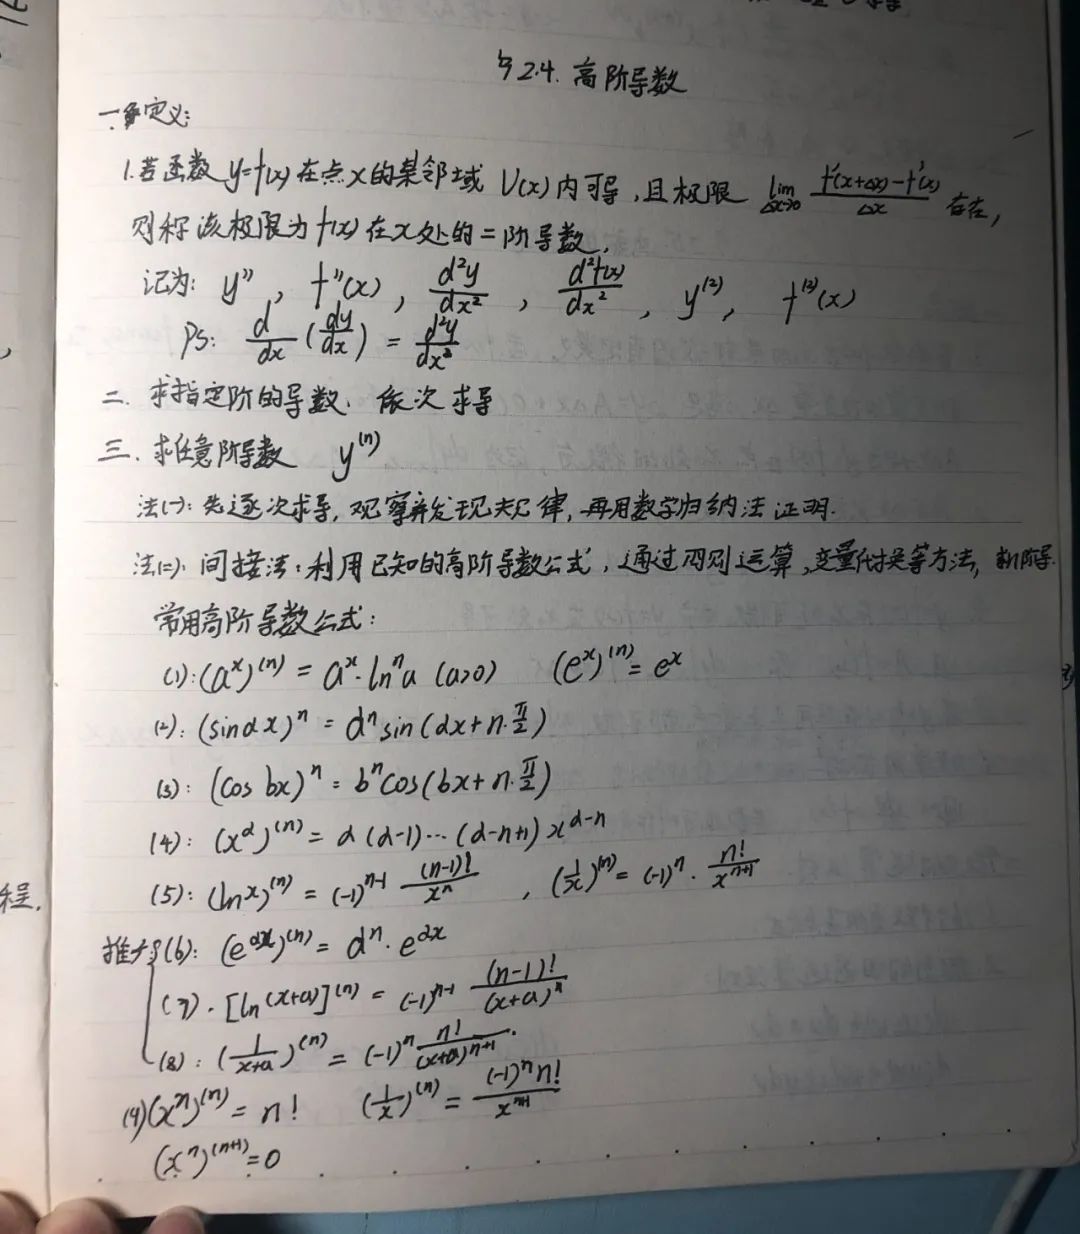 §2.4. 高阶导数
一.定义:
1.若函数 y=f(x) 在点x的某邻域 U(x)内可导,且极限 lim Δx→0 f'(x+Δx)-f'(x)/Δx 存在,
则称该极限为f(x)在x处的二阶导数,
记为: y'', f''(x), d²y/dx², d²f(x)/dx², y⁽²⁾, f⁽²⁾(x)
PS: d/dx (dy/dx) = d²y/dx²
二. 求指定阶的导数. 依次求导
三. 求任意阶导数 y⁽ⁿ⁾
法(一): 先逐次求导, 观察并发现规律, 再用数学归纳法证明.
法(二): 间接法: 利用已知的高阶导数公式, 通过四则运算, 变量代换等方法, 求n阶导.
常用高阶导数公式:
(1): (aˣ)⁽ⁿ⁾ = aˣ·lnⁿa (a>0) (eˣ)⁽ⁿ⁾ = eˣ
(2): (sinαx)ⁿ = αⁿsin(αx+n·π/2)
(3): (cos bx)ⁿ = bⁿcos(bx+n·π/2)
(4): (x^α)⁽ⁿ⁾ = α(α-1)···(α-n+1)x^(α-n)
(5): (lnx)⁽ⁿ⁾ = (-1)ⁿ⁻¹ (n-1)!/xⁿ , (1/x)⁽ⁿ⁾ = (-1)ⁿ · n!/xⁿ⁺¹
推广(6): (e^αx)⁽ⁿ⁾ = αⁿ·e^αx
(7). [ln(x+a)]⁽ⁿ⁾ = (-1)ⁿ⁻¹ (n-1)!/(x+a)ⁿ
(8): (1/x+a)⁽ⁿ⁾ = (-1)ⁿ n!/(x+a)ⁿ⁺¹.
(9)(xⁿ)⁽ⁿ⁾ = n! (1/x)⁽ⁿ⁾ = (-1)ⁿn!/xⁿ⁺¹
(xⁿ)⁽ⁿ⁺¹⁾=0
程.